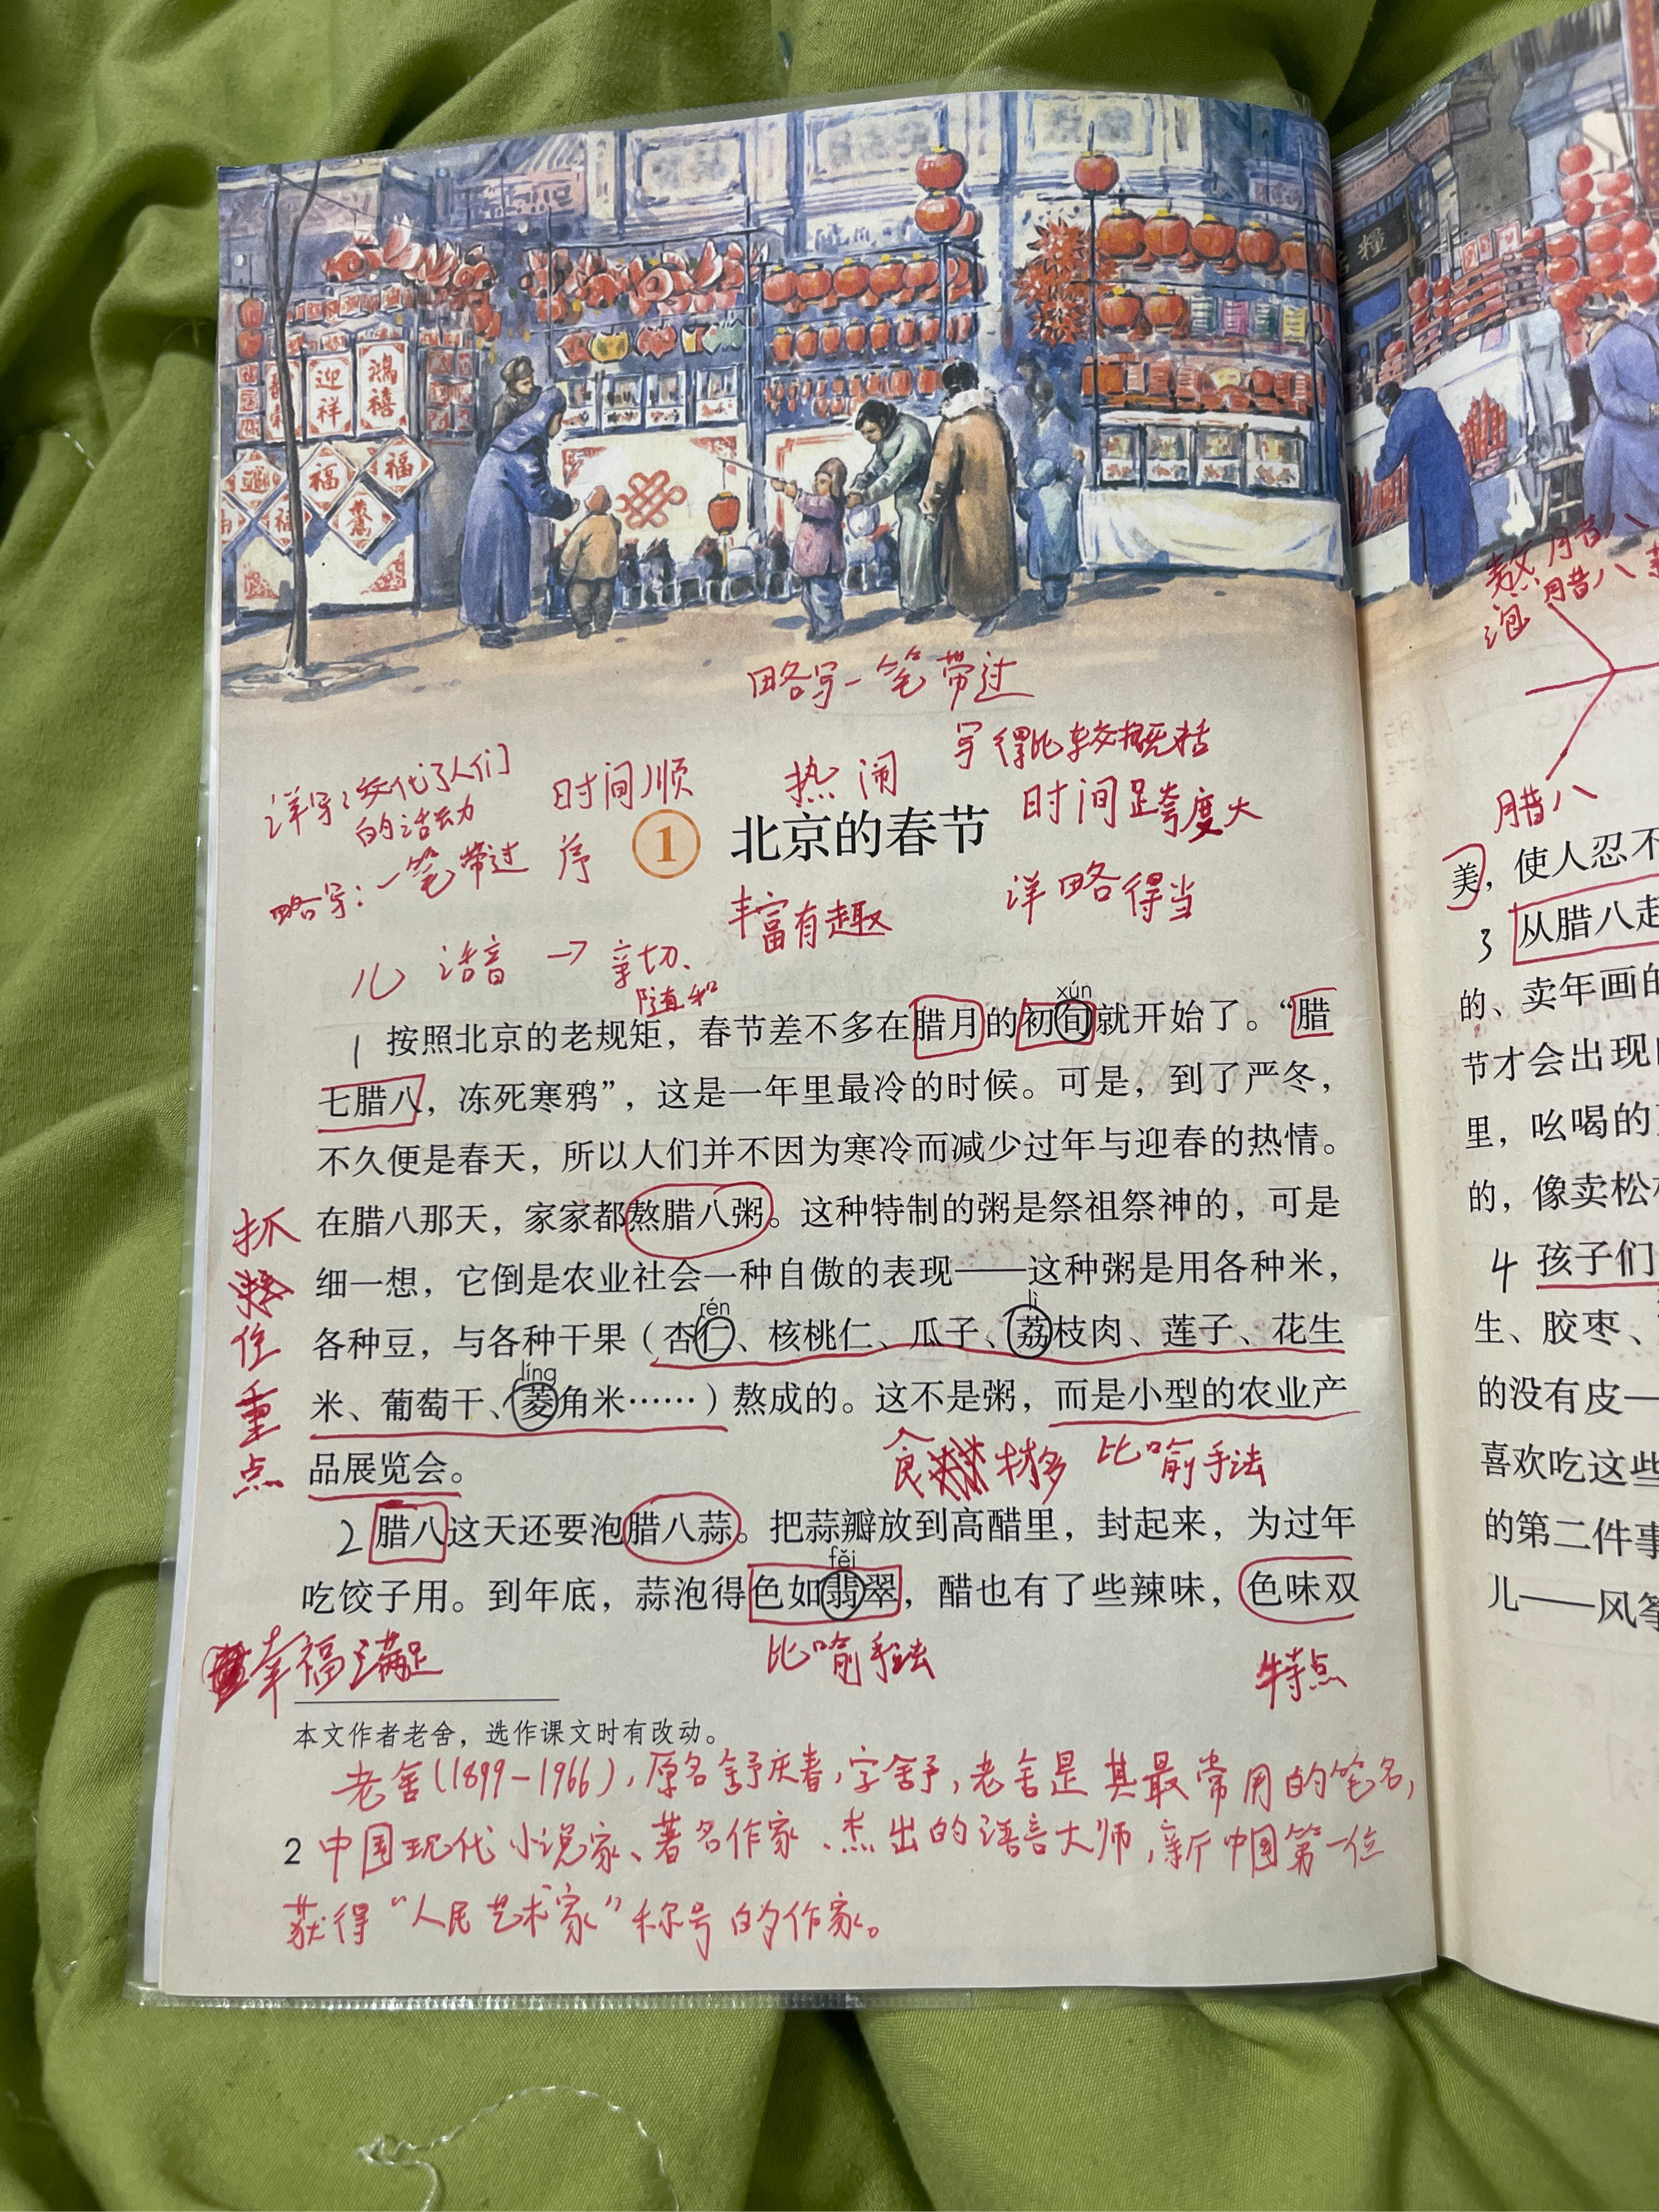 鸿禧
迎祥
福
福
福
糧
略写一笔带过
写得比较概括
详写:交代了人们
的活动
时间顺
序
热闹
时间跨度大
略写:一笔带过
① 北京的春节
丰富有趣
详略得当
儿话音→亲切、
随和
xún
1 按照北京的老规矩，春节差不多在腊月的初旬就开始了。“腊
七腊八，冻死寒鸦”，这是一年里最冷的时候。可是，到了严冬，
不久便是春天，所以人们并不因为寒冷而减少过年与迎春的热情。
在腊八那天，家家都熬腊八粥。这种特制的粥是祭祖祭神的，可是
细一想，它倒是农业社会一种自傲的表现——这种粥是用各种米，
rén lì
各种豆，与各种干果（杏仁、核桃仁、瓜子、荔枝肉、莲子、花生
líng
米、葡萄干、菱角米……）熬成的。这不是粥，而是小型的农业产
品展览会。
抓住重点
食材多 比喻手法
2 腊八这天还要泡腊八蒜。把蒜瓣放到高醋里，封起来，为过年
fěi
吃饺子用。到年底，蒜泡得色如翡翠，醋也有了些辣味，色味双
幸福满足
比喻手法
特点
本文作者老舍，选作课文时有改动。
老舍(1899-1966),原名舒庆春,字舍予,老舍是其最常用的笔名,
中国现代小说家、著名作家、杰出的语言大师,新中国第一位
获得“人民艺术家”称号的作家。
2
熬腊八
泡腊八
腊八
美，使人忍不
3 从腊八起
的、卖年画的
节才会出现
里，吆喝的
的，像卖松
4 孩子们
生、胶枣、
的没有皮—
喜欢吃这些
的第二件事
儿——风筝